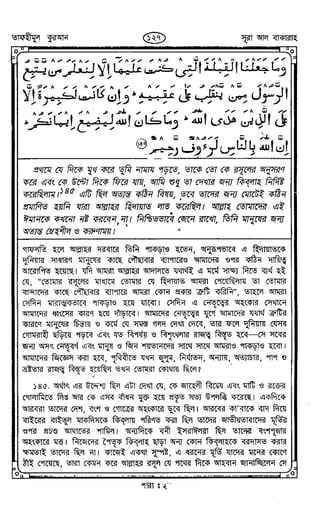 তাফহীমুল কুরআন
১২৭
সূরা আল বাকারাহ
وَمَا جَعَلْنَا الْقِبْلَةَ الَّتِي كُنْتَ عَلَيْهَا إِلَّا لِنَعْلَمَ مَنْ يَتَّبِعُ
الرَّسُولَ مِمَّنْ يَنْقَلِبُ عَلَىٰ عَقِبَيْهِ ۚ وَإِنْ كَانَتْ لَكَبِيرَةً إِلَّا
عَلَى الَّذِينَ هَدَى اللَّهُ ۗ وَمَا كَانَ اللَّهُ لِيُضِيعَ إِيمَانَكُمْ ۚ
إِنَّ اللَّهَ بِالنَّاسِ لَرَءُوفٌ رَحِيمٌ
প্রথমে যে দিকে মুখ করে তুমি নামায পড়তে, তাকে তো কে রসূলের অনুসরণ
করে এবং কে উল্টো দিকে ফিরে যায়, আমি শুধু তা দেখার জন্য কিব্‌লাহ নির্দিষ্ট
করেছিলাম।১৪৫ এটি ছিল অত্যন্ত কঠিন বিষয়, তবে তাদের জন্য মোটেই কঠিন
প্রমাণিত হয়নি যারা আল্লাহর হিদায়াত লাভ করেছিল। আল্লাহ তোমাদের এই
ঈমানকে কখনো নষ্ট করবেন না। নিশ্চিতভাবে জেনে রাখো, তিনি মানুষের জন্য
অত্যন্ত স্নেহশীল ও করুণাময়।
গাফলতি হলে আল্লাহর দরবারে তিনি পাকড়াও হতেন, অনুরূপভাবে এ হিদায়াতকে
দুনিয়ার সাধারণ মানুষের কাছে পৌঁছাবার ব্যাপারেও আমাদের ওপর কঠিন দায়িত্ব
আরোপিত হয়েছে। যদি আমরা আল্লাহর আদালতে যথার্থই এ মর্মে সাক্ষ্য দিতে ব্যর্থ হই
যে, "তোমার রসূলের মাধ্যমে তোমার যে হিদায়াত আমরা পেয়েছিলাম তা তোমার
বান্দাদের কাছে পৌঁছাবার ব্যাপারে আমরা কোন প্রকার ত্রুটি করিনি", তাহলে আমরা
সেদিন মারাত্মকভাবে পাকড়াও হয়ে যাবো। সেদিন এ নেতৃত্বের অহংকার সেখানে
আমাদের ধ্বংসের কারণ হয়ে দাঁড়াবে। আমাদের নেতৃত্বের যুগে আমাদের যথার্থ ত্রুটির
কারণে মানুষের চিন্তায় ও কর্মে যে সমস্ত গলদ দেখা দেবে, তার ফলে দুনিয়ায় যেসব
গোমরাহী ছড়িয়ে পড়বে এবং যত বিপর্যয় ও বিশৃংখলার রাজত্ব বিস্তৃত হবে—সে সবের
জন্য অসৎ নেতৃবর্গ এবং মানুষ ও জিন শয়তানদের সাথে সাথে আমরাও পাকড়াও হবো।
আমাদের জিজ্ঞেস করা হবে, পৃথিবীতে যখন জুলুম, নির্যাতন, অন্যায়, অত্যাচার, পাপ ও
ভ্রষ্টতার রাজত্ব বিস্তৃত হয়েছিল তখন তোমরা কোথায় ছিলে?
১৪৫. অর্থাৎ এর উদ্দেশ্য ছিল এটা দেখা যে, কে জাহেলী বিদ্বেষ এবং মাটি ও রক্তের
গোলামিতে লিপ্ত আর কে এসব বাঁধন মুক্ত হয়ে প্রকৃত সত্য উপলব্ধি করেছে। একদিকে
আরবরা তাদের দেশ, বংশ ও গোত্রের অহংকারে ডুবে ছিল। আরবের কা'বাকে বাদ দিয়ে
বাইরের বাইতুল মাকদিসকে কিব্‌লায় পরিণত করা ছিল তাদের জাতীয়তাবাদের মূর্তির
ওপর প্রচণ্ড আঘাতের শামিল। অন্যদিকে বনী ইসরাঈলরা ছিল তাদের বংশপূজার
অহংকারে মত্ত। নিজেদের পৈতৃক কিব্‌লাহ ছাড়া অন্য কোন কিব্‌লাহকে বরদাশত করার
ক্ষমতাই তাদের ছিল না। কাজেই একথা সুস্পষ্ট, এ ধরনের মূর্তি যাদের মনের কোণে
ঠাঁই পেয়েছে, তারা কেমন করে আল্লাহর রসূল যে পথের দিকে আহবান জানাচ্ছিলেন সে
পারা : ২